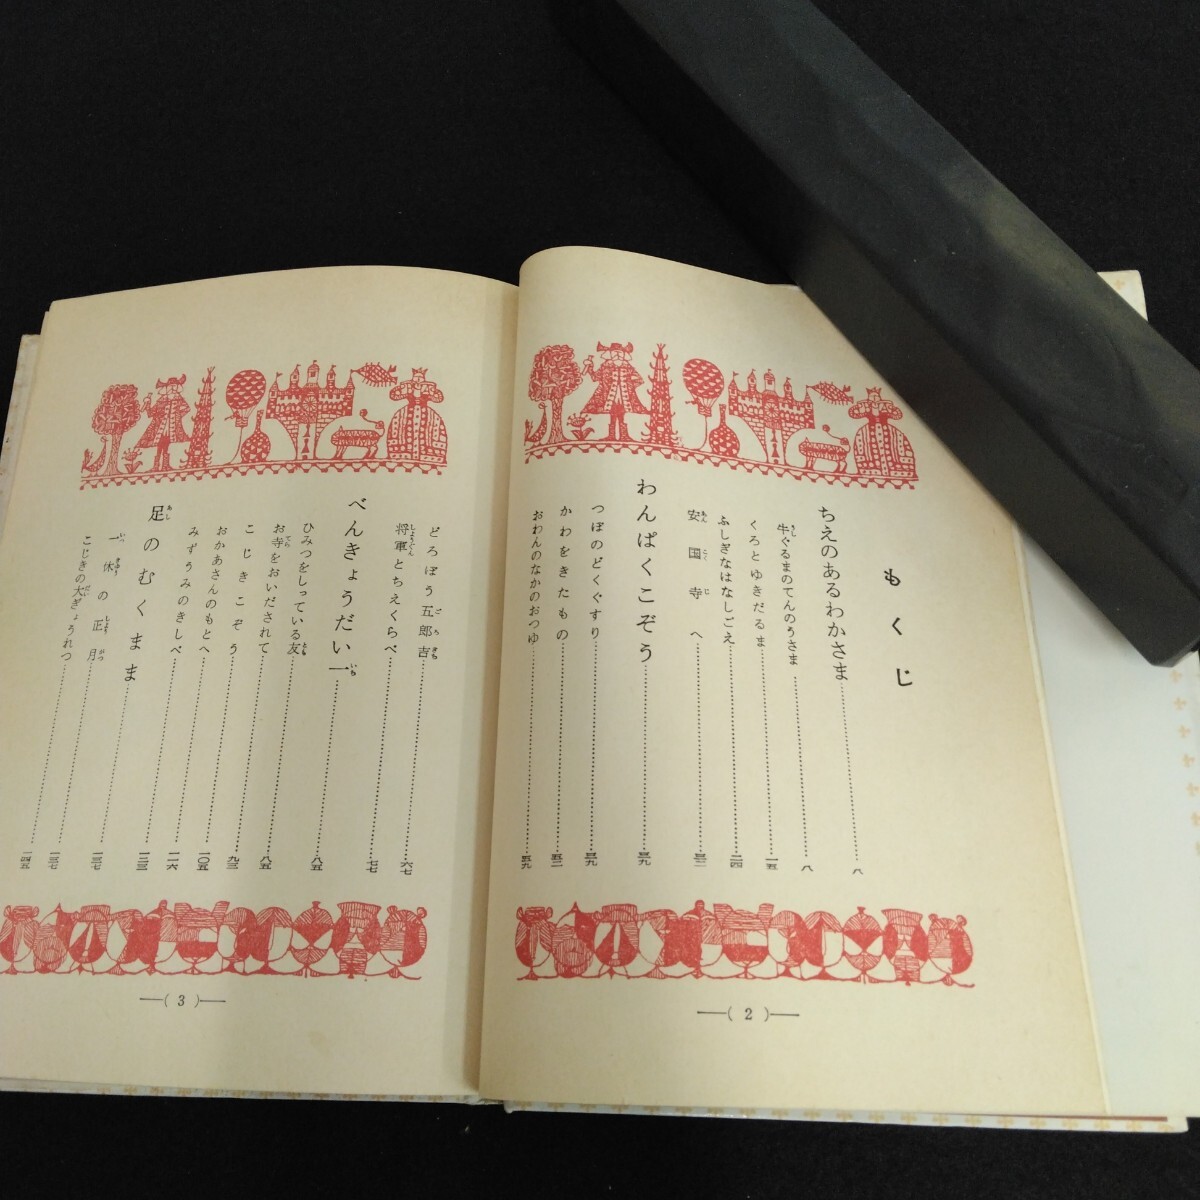 もくじ
ちえのあるわかさま……八
牛ぐるまのてんのうさま……八
くろとゆきだるま……一五
ふしぎなはなしごえ……二四
安国寺へ……三二
わんぱくこぞう……三九
つぼのどくぐすり……三九
かわをきたもの……五二
おわんのなかのおつゆ……五九
(2)
どろぼう五郎吉……六七
将軍とちえくらべ……七七
べんきょうだい一……八五
ひみつをしっている友……八五
お寺をおいだされて……八五
こじきこぞう……九三
おかあさんのもとへ……一〇五
みずうみのきしべ……一一六
足のむくまま……一三七
一休の正月……一三七
こじきの大ぎょうれつ……一四五
(3)